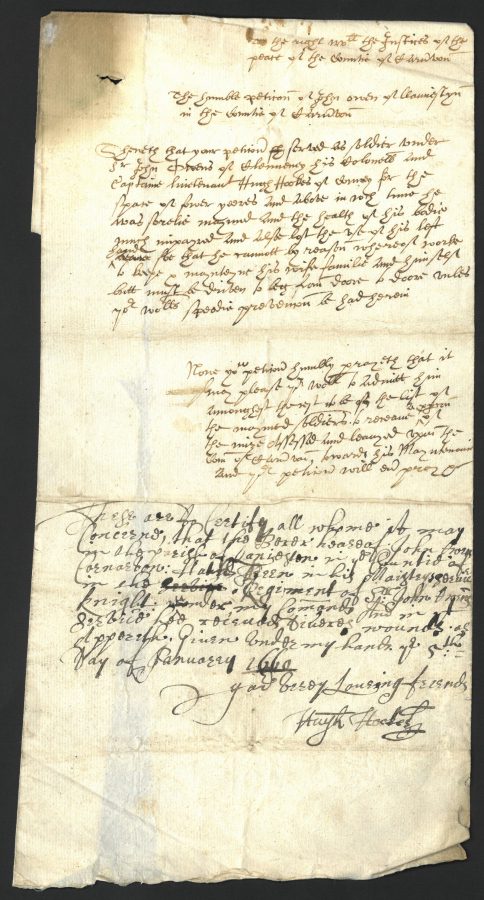 To the right wo:ll the Justices of the
peace of the Countie of Carnarvon
The humble peticon of John Owen of
in the Countie of Carnarvon
Sheweth that your petitionr served as soldier under
Sr John Owens of Clenneney his Colonell and
Captaine Lieutenant Hugh Hookes of Conwey for the
space of fower yeeres and above in wch time he
was sorelie maymed and the health of his bodie
much impayred and alsoe lost the use of his left
hand soe that he cannott by reason whereof worke
to keepe & mainteyne his wife familie and himself
but must be driven to beg from doore to doore unles
yor wopps speedie prevencon be had herein
Nowe yor petitionr humbly prayeth that it
may please yor wopps to admitt him
amongst the rest to be in the list of
the maymed soldiers to receave a pencon of
the mize assessed and leavyed upon the
Com of Carnarvon towards his Mayntenance
And yor petitionr will ever pray &
These are to Certify all whome it may
Concerne, that the Berer heareof John Owen
in the parish of in ye Countie of
Carnarvon. Hath Been in his Majties Service
in the Regiment of Sr John Owens
Knight. under my Comand And in ye
Service he received diveres wounds as
Apperes. Given under my hand ye 5th
Day of Januarey 1660
yor verey Loveing freend
Hugh Hookes